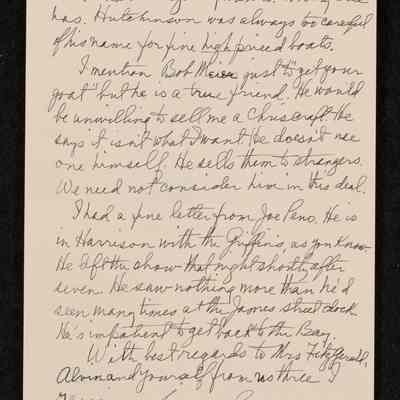 has. Hutchinson was always too careful
of his name for fine high priced boats.
I mention Bob Meier just to "get your
goat" but he is a true friend. He would
be unwilling to sell me a Chriscraft. He
says it isn't what I want. He doesn't use
one himself. He sells them to strangers.
We need not consider him in this deal.
I had a fine letter from Joe Peno. He is
in Harrison with the Griffins as you know.
He left the show that night shortly after
seven. He saw nothing more than he'd
seen many times at the James street dock.
He's impatient to get back to the Bay.
With best regards to Mrs Fitzgerald,
Alvin and yourself from us three I